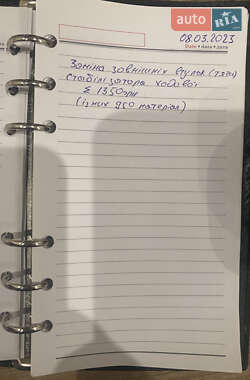 auto RIA
08.03.2023
Date • дата • дата
Заміна зовнішніх втулок
стабілізатора ходової
Σ 1350грн
(із них 950 матеріал)